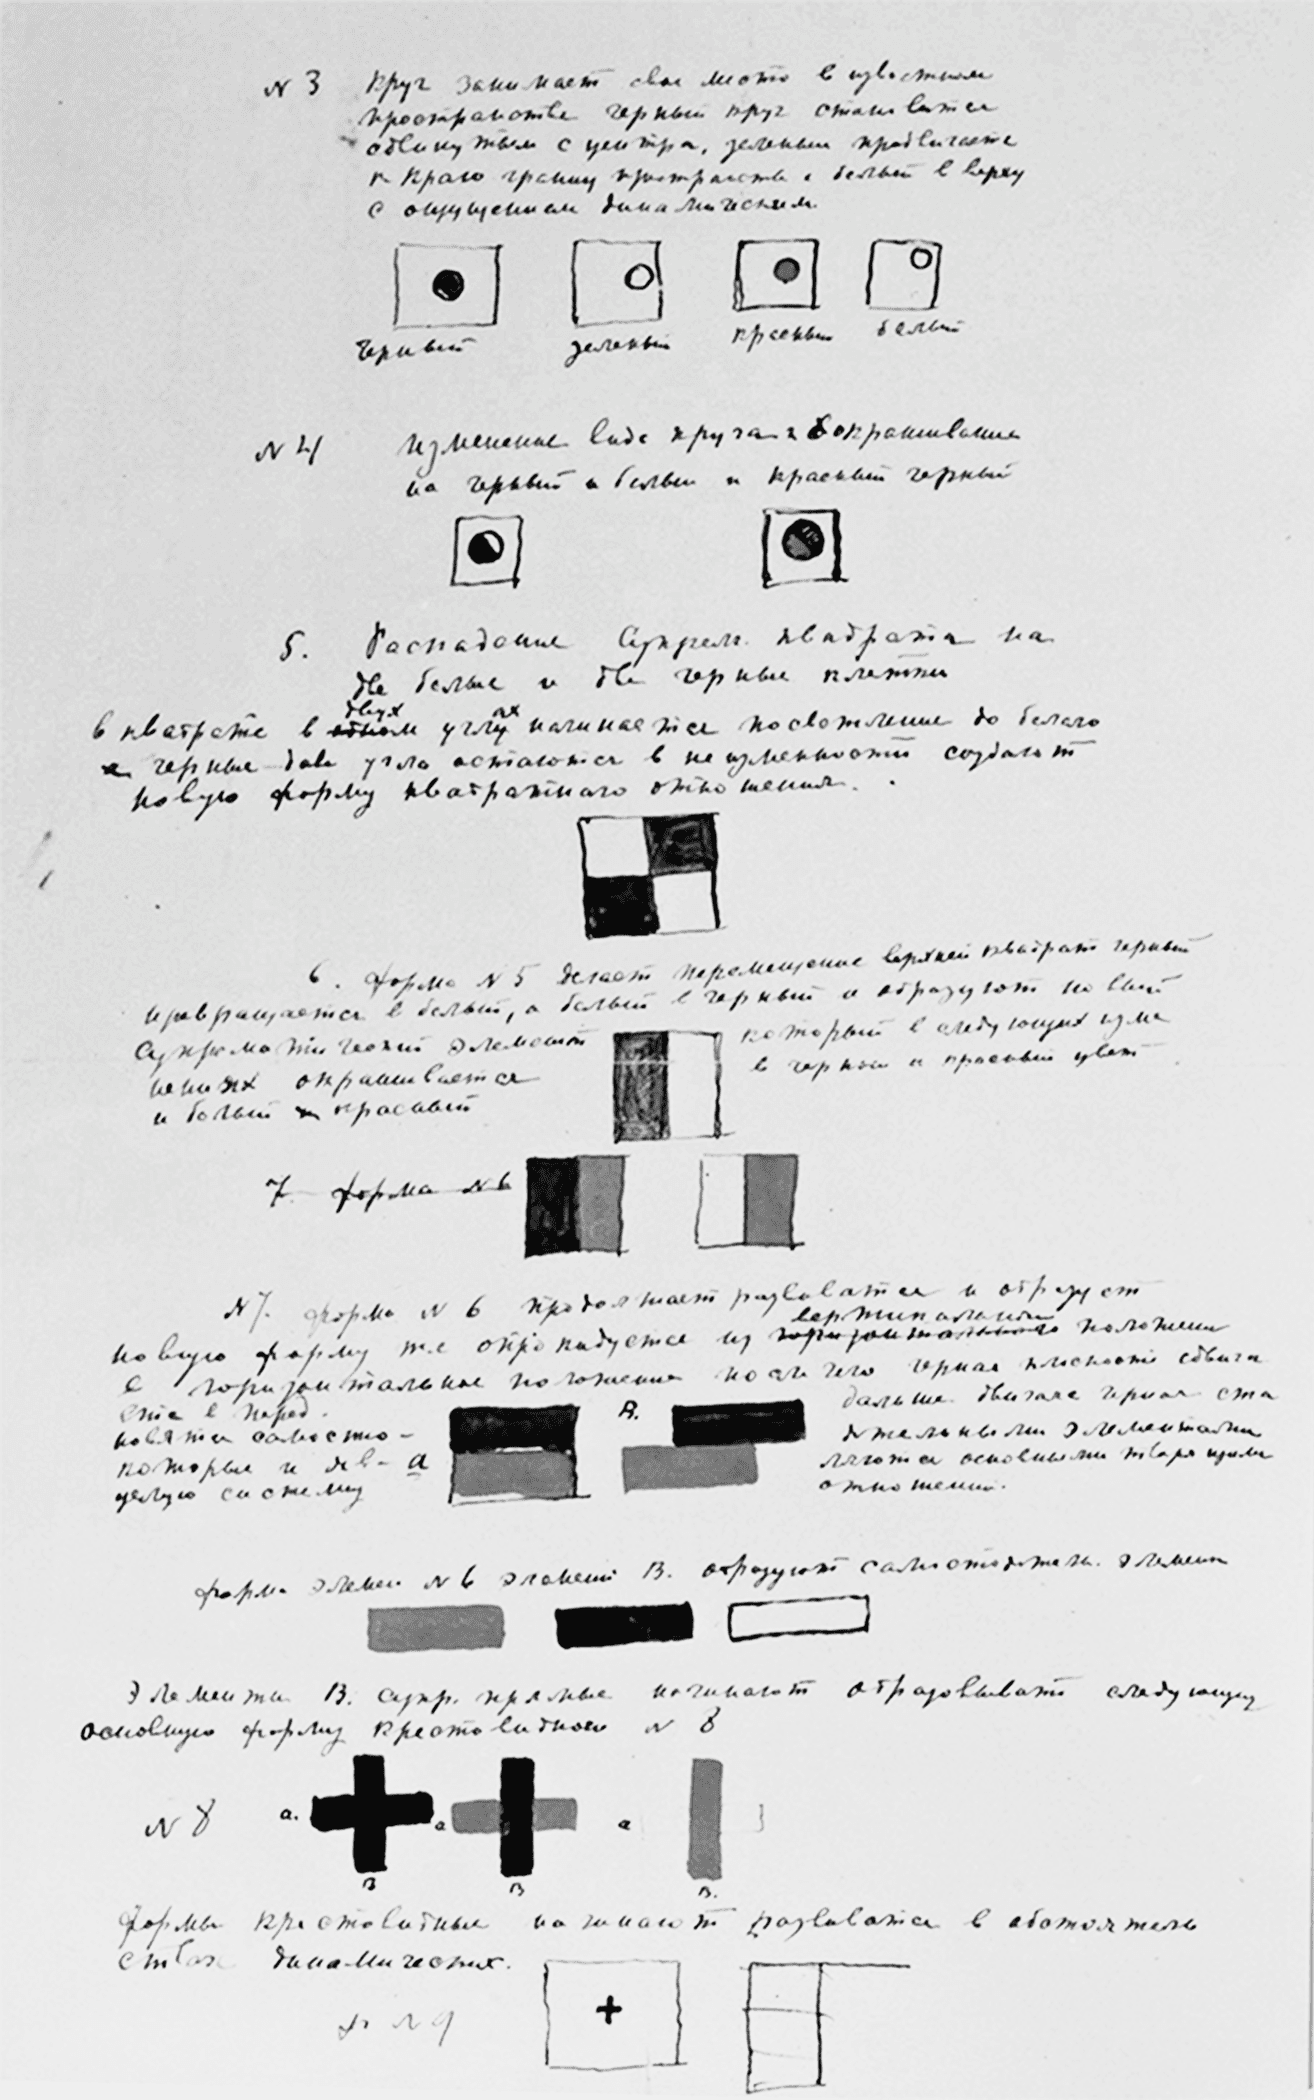 N 3 Круг занимает свое место в известном
пространстве черный круг становится
сдвинутым с центра, зеленый продвигается
к краю границ пространства и белый в верху
с ощущением динамическим
черный зеленый красный белый
N 4 Изменение вида круга и окрашивание
на черный и белый и красный черный
5. Распадение Супрем. квадрата на
две белые и две черные клетки
двух ах
в квадрате в одном углу начинается посветление до белого
черные два угла остаются в неизменности создают
новую форму квадратного отношения.
6. форма N 5 делает перемещение верхней квадрат черный
превращается в белый, а белый в черный и образуют новый
супрематический элемент который в следующих изме
нениях окрашивается в черный и красный цвет
и белый и красный
7. форма N 6
N 7. форма N 6 продолжает развиваться и образует
вертикального
новую форму т.е. опрокидуется из горизонтального положения
в горизонтальное положение после чего черная плоскость сдвига
ется в перед. В. дальше двигаясь черная ста
новятся самосто- ятельными элементами
которые и яв- а ляются основными творя щими
целую систему отношений.
форма элемен N 6 элемент В. образуют самостоятельн. элемент
Элементы В. супр. прямые начинают образовывать следующую
основную форму крестовидного N 8
N 8 а. а а
В В В.
Формы крестовидные начинают развиваться в обстоятель
ствах динамических.
N 9